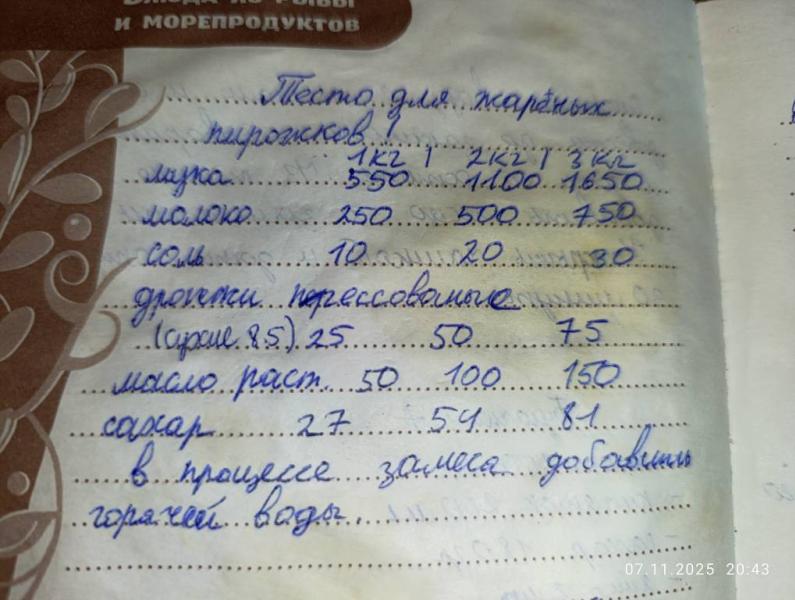 Блюда из рыбы
и морепродуктов
Тесто для жареных
пирожков!
1 кг | 2 кг | 3 кг
мука 550 1100 1650
молоко 250 500 750
соль 10 20 30
дрожжи перессованые
(сухие 8.5) 25 50 75
масло раст. 50 100 150
сахар 27 54 81
в процессе замеса добавить
горячей воды.
07.11.2025 20:43